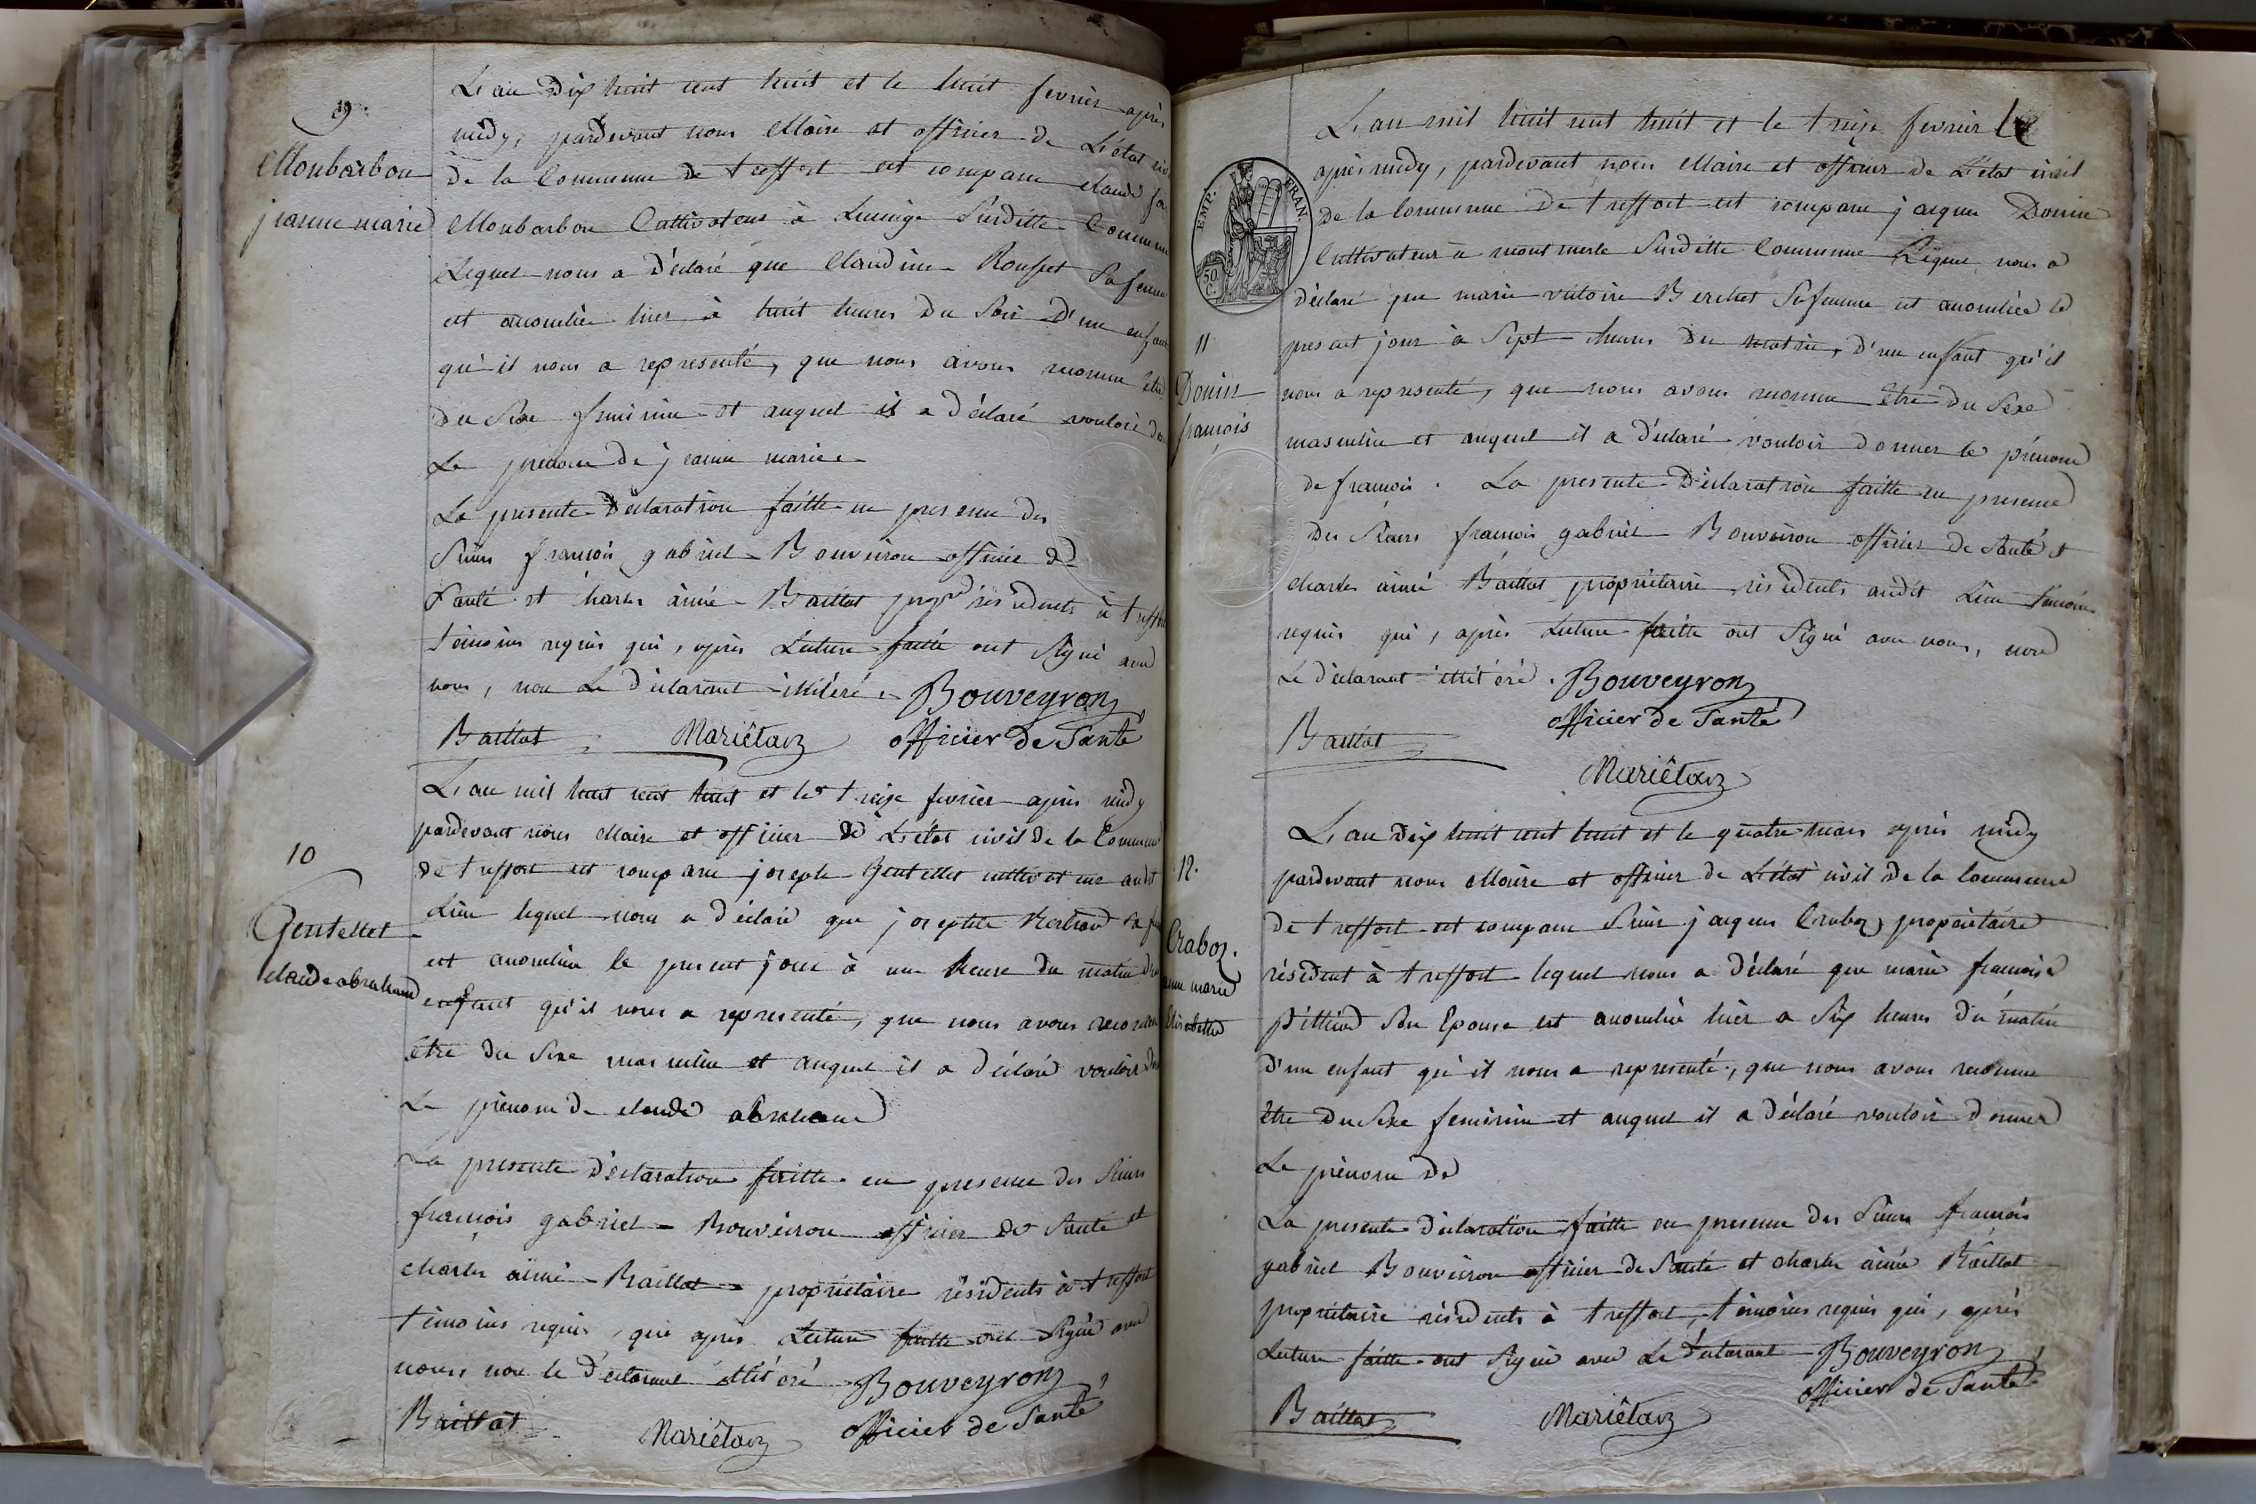 9
Monbarbon
jeanne marie
L'an dix huit cent huit et le huit fevrier après
midy, pardevant nous Maire et officier de L'état civ
de la Commune de treffort est comparu claude
Monbarbon Cultivateur à Lucinge Surditte Commune
Lequel nous a déclaré que Claudine Rousset Sa femme
est accouchée hier à huit heures du Soir D'un enfant
qu'il nous a representé, que nous avons reconnu être
du Sexe feminin et auquel il a déclaré vouloir do
Le prénom de jeanne marie
La presente Déclaration faitte en presence des
Sieurs françois gabriel Bouveiron officier de
Santé et charles aimé Baillat prop.re résidents à treffort
témoins requis qui, après Lecture faitte ont Signé avec
nous, non Le déclarant illitéré. Bouveyron
Baillat Mariétan officier de Santé
10
Gentellet
claude abraham
L'an mil huit cent huit et le treize fevrier après midy
pardevant nous Maire et officier de L'état civil de la Commune
de treffort est comparu joseph Gentellet cultivateur audit
Lieu lequel nous a déclaré que josephte Sa
est accouchée le present jour à une heure du matin d'un
enfant qu'il nous a representé, que nous avons reconnu
être du Sexe masculin et auquel il a déclaré vouloir do
Le prénom de claude abraham
La presente Déclaration faitte en presence des Sieurs
françois gabriel Bouveiron officier de Santé et
charles aimé Baillat propriétaire résidents à treffort
témoins requis, qui après Lecture faitte ont Signé avec
nous non le déclarant illitéré Bouveyron
Baillat Mariétan officier de Santé
EMP. FRAN.
50
C.
11
Douin
françois
L'an mil huit cent huit et le treize fevrier
après midy, pardevant nous Maire et officier de L'état civil
de la Commune de treffort est comparu jacques Douin
Cultivateur à montmerle Surditte Commune Lequel nous a
déclaré que marie victoire Berchet Sa femme est accouchée le
present jour à Sept heures du matin, D'un enfant qu'il
nous a representé, que nous avons reconnu être du Sexe
masculin et auquel il a déclaré vouloir donner le prénom
de françois. La presente Déclaration faitte en presence
des Sieurs françois gabriel Bouveiron officier de Santé et
charles aimé Baillat propriétaire résidents audit Lieu témoins
requis qui, après Lecture faitte ont Signé avec nous, non
Le déclarant illitéré. Bouveyron
Baillat officier de Santé
Mariétan
12.
Craboz.
anne marie
Elisabeth
L'an dix huit cent huit et le quatre mars après midy
pardevant nous Maire et officier de L'état civil de la Commune
de treffort est comparu Sieur jacques Craboz propriétaire
résident à treffort lequel nous a déclaré que marie françoise
pittion Son Epouse est accouchée hier a Six heures du matin
d'un enfant qu'il nous a representé, que nous avons reconnu
être du Sexe feminin et auquel il a déclaré vouloir donner
Le prénom de
La presente déclaration faitte en presence des Sieurs françois
gabriel Bouveiron officier de Santé et charles aimé Baillat
propriétaire résidents à treffort, témoins requis qui, après
Lecture faitte ont Signé avec Le déclarant Bouveyron
Baillat Mariétan officier de Santé